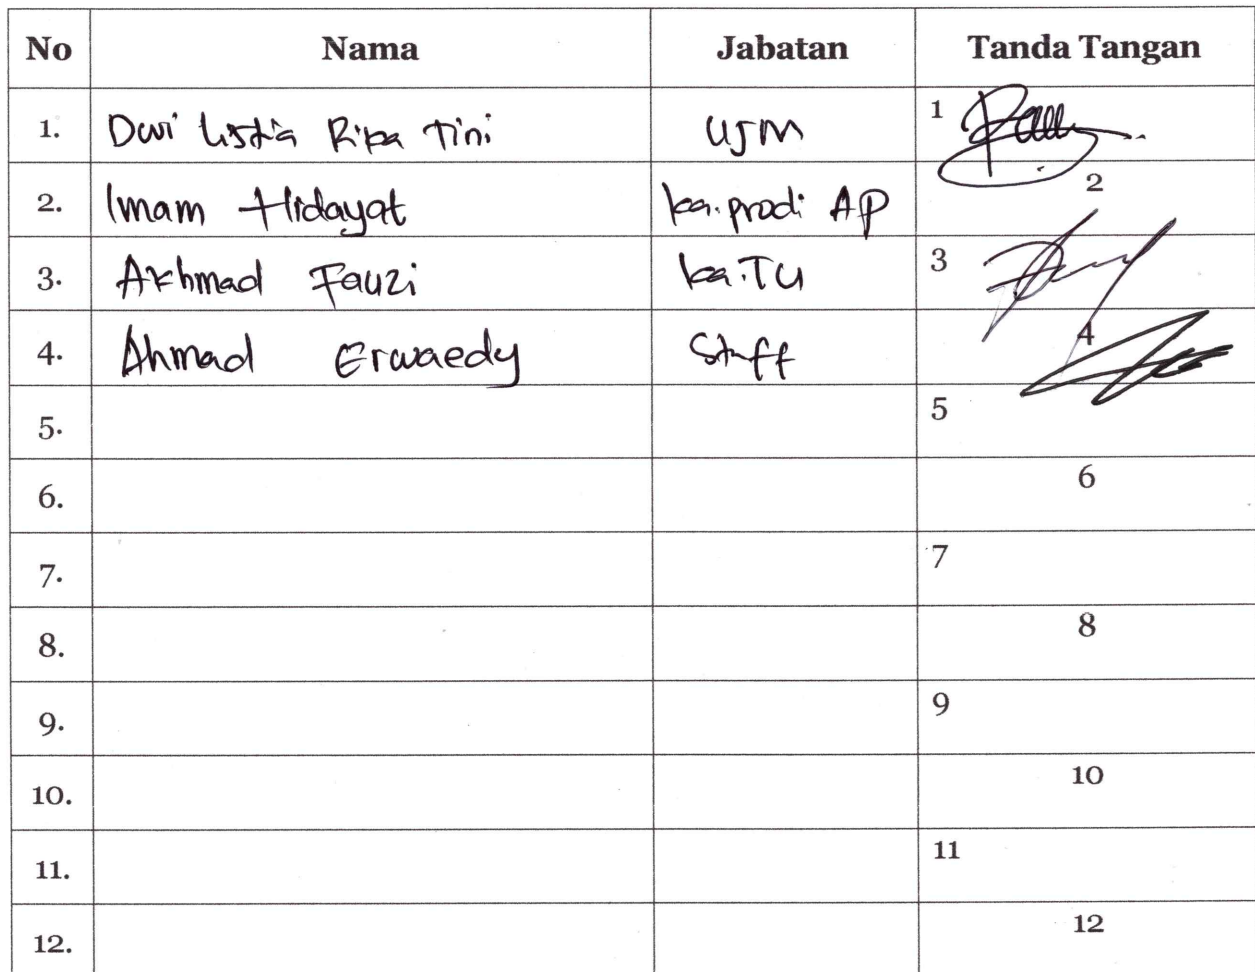 No Nama Jabatan Tanda Tangan
1. Dwi Listia Rika Tini UJM 1
2. Imam Hidayat ka.prodi AP 2
3. Akhmad Fauzi ka.TU 3
4. Ahmad Erwaedy Staff 4
5. 5
6. 6
7. 7
8. 8
9. 9
10. 10
11. 11
12. 12